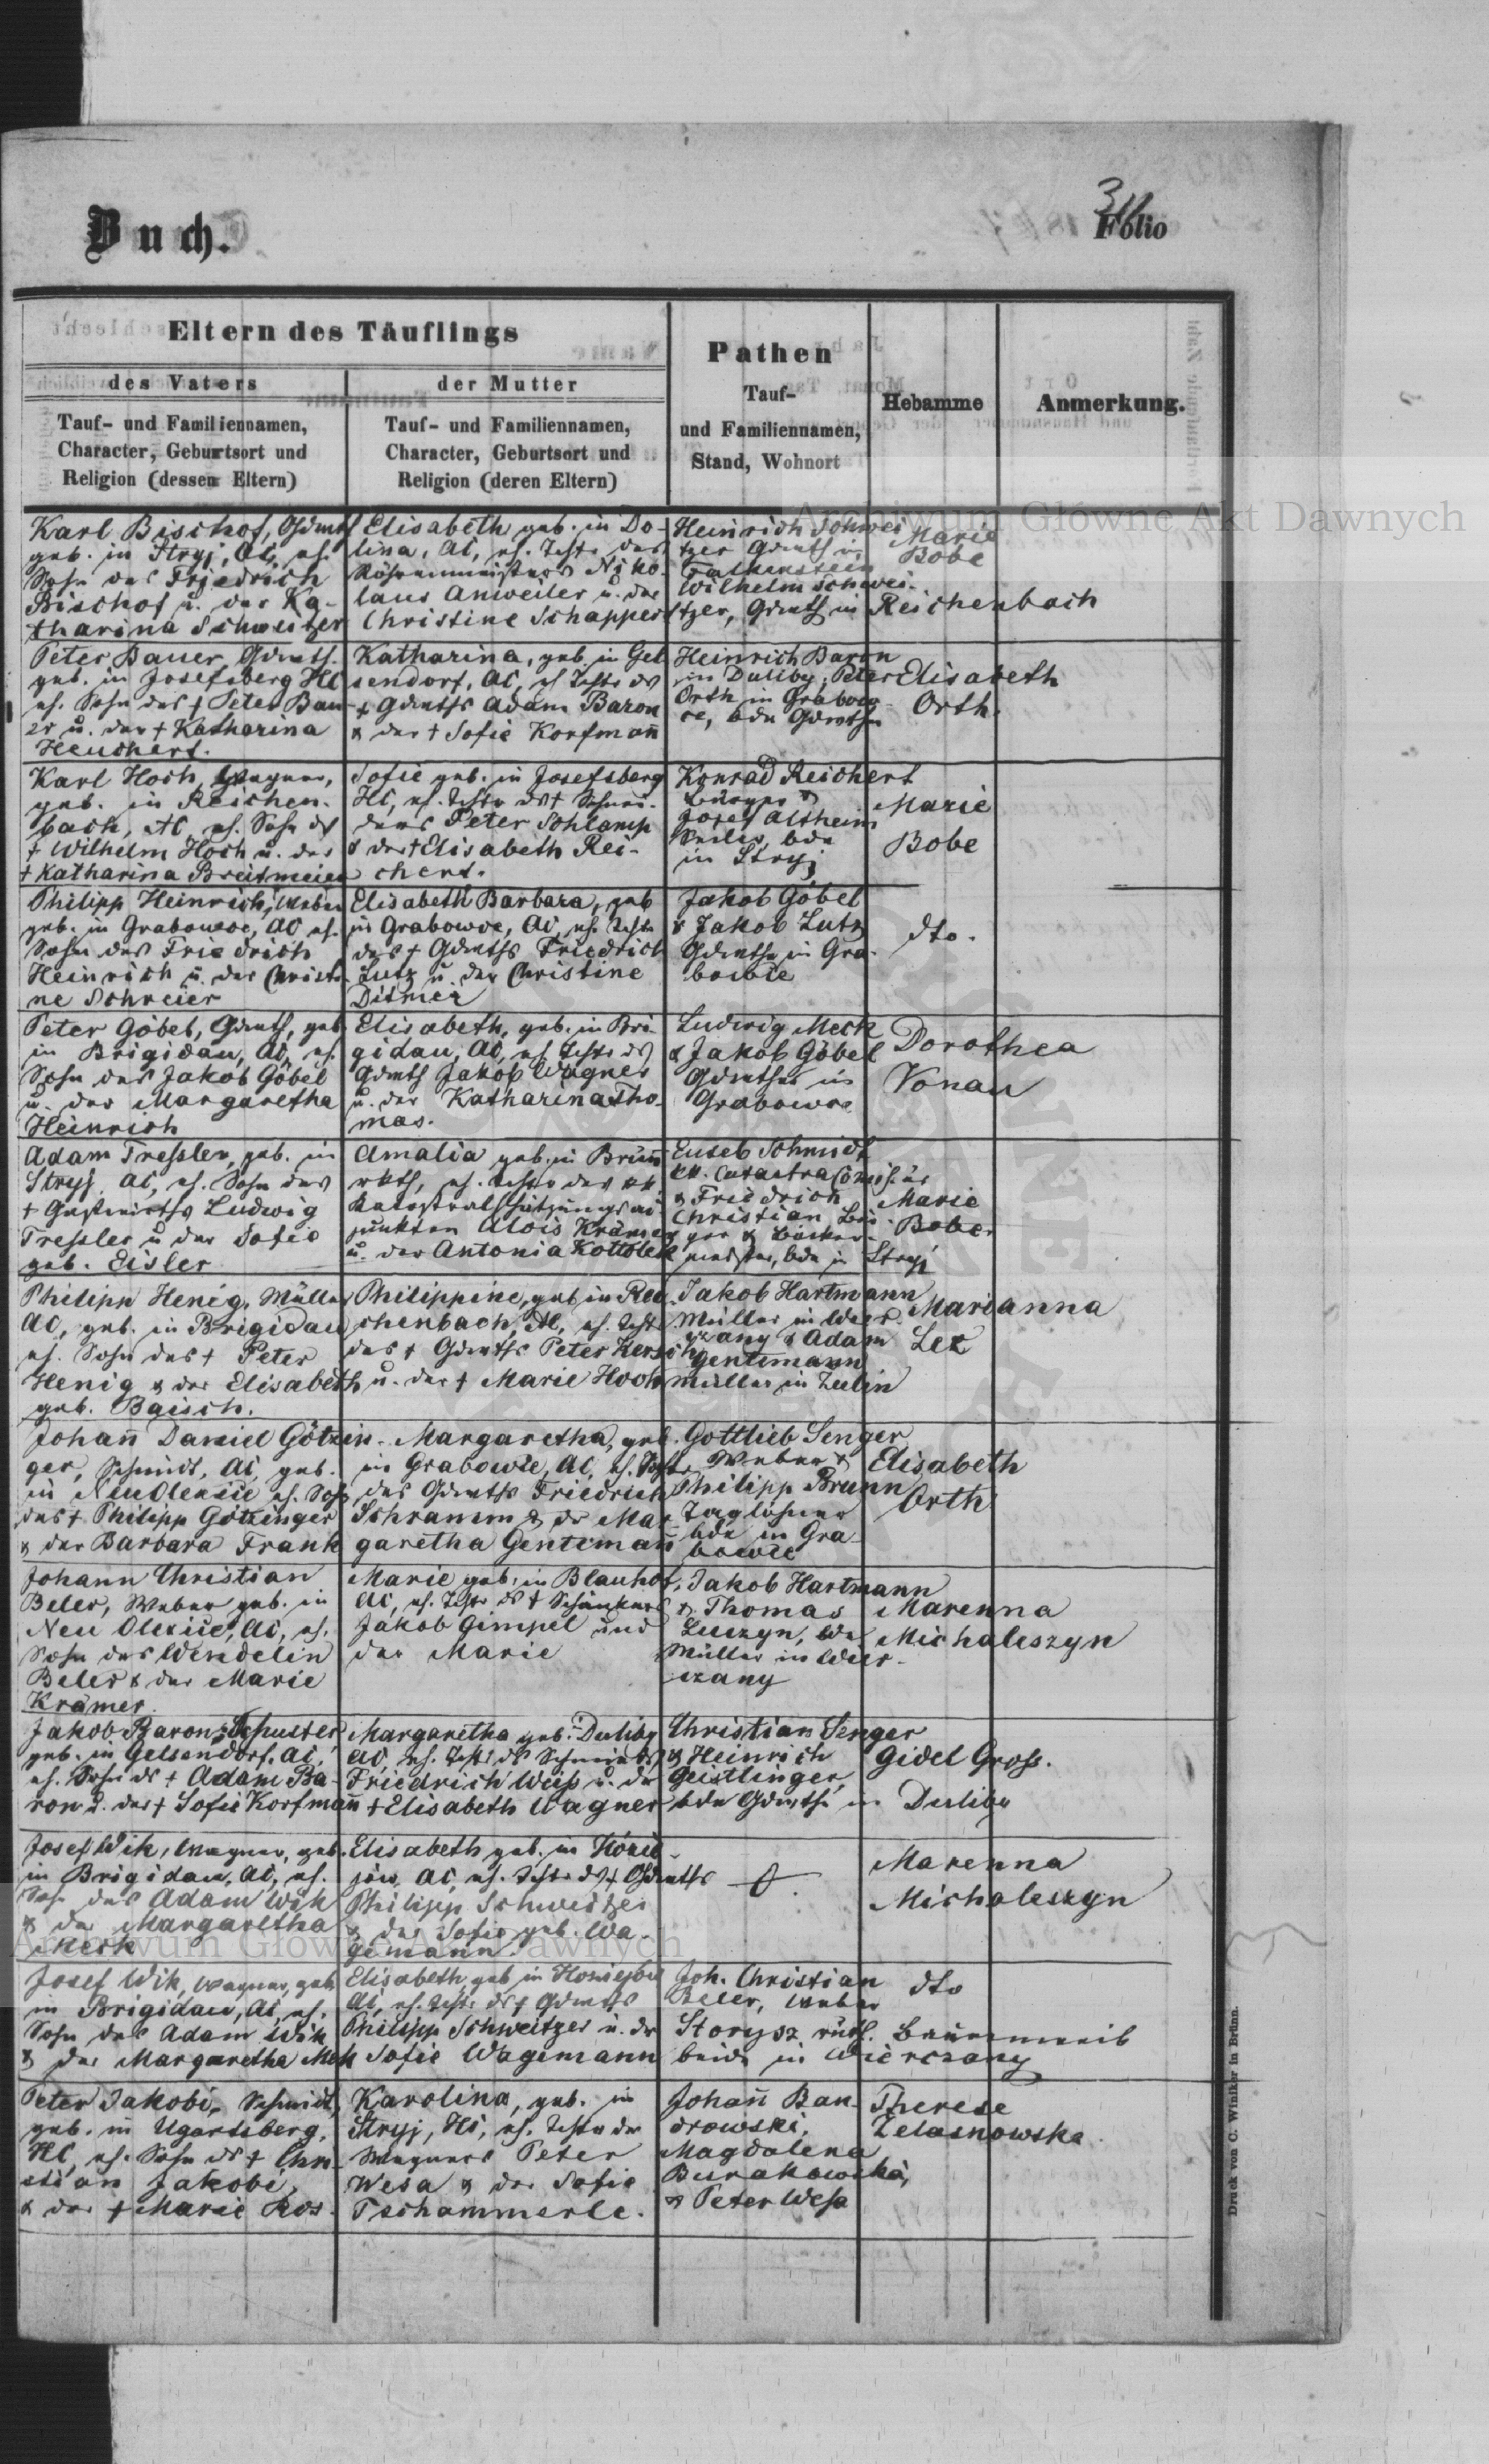 Buch.
Folio
Eltern des Täuflings
des Vaters
Tauf- und Familiennamen,
Character, Geburtsort und
Religion (dessen Eltern)
der Mutter
Tauf- und Familiennamen,
Character, Geburtsort und
Religion (deren Eltern)
Pathen
Tauf-
und Familiennamen,
Stand, Wohnort
Hebamme
Anmerkung.
Archiwum Główne Akt Dawnych
Karl Bischof, Gdwths
geb. in Stryj, AC, eh.
Sohn des Friedrich
Bischof u. der Ka-
tharina Schweitzer
Elisabeth geb. in Do-
lina, AC, eh. Tcht. des
Röhrenmeisters Niko-
laus Anweiler u. der
Christine Schappert
Heinrich Schwei
tzer Gdwth in
Falkenstein
Wilhelm Schwei-
tzer, Gdwth in Reichenbach
Marie
Bobe
Peter Bauer, Gdwth.
geb. in Josefsberg HC
eh. Sohn des + Peter Bau-
er u. der + Katharina
Heuchert.
Katharina, geb. in Gel
sendorf, AC, eh Tcht. ds
+ Gdwths Adam Baron
& der + Sofie Korfmañ
Heinrich Baron
in Duliby, Peter
Orth in Grabow-
ce, bde Gdwthe
Elisabeth
Orth.
Karl Hoch, Wagner,
geb. in Reichen-
bach, AC, eh. Sohn ds
+ Wilhelm Hoch u. der
+ Katharina Breitmeier
Sofie geb. in Josefsberg
HC, eh. Tcht. ds + Schnei-
ders Peter Schlamp
& der + Elisabeth Rei-
chert.
Konrad Reichert
Bürger &
Josef Altheim
Seiler, bde
in Stryj
Marie
Bobe
Philipp Heinrich, Weber
geb. in Grabowce, AC eh.
Sohn des Friedrich
Heinrich u. der Christi-
ne Schreier
Elisabeth Barbara, geb
in Grabowce, AC, eh. Tcht.
des + Gdwths Friedrich
Lutz u. der Christine
Ditmer
Jakob Göbel
& Jakob Lutz
Gdwthe in Gra-
bowce
dto.
Peter Göbel, Gdwth, geb
in Brigidau, AC, eh.
Sohn des Jakob Göbel
u. der Margaretha
Heinrich
Elisabeth, geb. in Bri-
gidau, AC, eh Tcht. ds
Gdwth Jakob Wagner
u. der Katharina Tho-
mas.
Ludwig Meck
& Jakob Göbel
Gdwthe in
Grabowce
Dorothea
Vonau
Adam Tressler, geb. in
Stryj AC, eh. Sohn des
+ Gastwirths Ludwig
Tressler u. der Sofie
geb. Eisler
Amalia geb. in Brünn
rkth, eh. Tochter des kk.
Katastralschätzungsad-
junkten Alois Krämer
u. der Antonia Kottolek
Euseb Schmidt
& Friedrich
Christian Bür-
ger & Bäcker-
meister, bde in Stryj
Marie
Bober
Philipp Henig, Müller
AC, geb. in Brigidau
eh. Sohn des + Peter
Henig & der Elisabeth
geb. Baisch.
Philippine, geb in Rei-
chenbach, AC, eh. Tcht.
des + Gdwths Peter Kersch
u. der + Marie Hoch
Jakob Hartmann
Müller in Wier-
czany & Adam
Gentemann
Müller in Zulin
Marianna
Lez
Johañ Daniel Götzin-
ger, Schmidt, AC, geb.
in Neu Olexice eh. Sohn
des + Philipp Götzinger
& der Barbara Frank
Margaretha, geb.
in Grabowce, AC, eh. Tcht.
des Gdwths Friedrich
Schramm & der Mar-
garetha Gentemañ
Gottlieb Senger
Weber &
Philipp Brunn
Taglöhner
bde in Gra-
bowce
Elisabeth
Orth
Johann Christian
Beler, Weber geb. in
Neu Olexice, AC, eh.
Sohn des Wendelin
Beler & der Marie
Krämer.
Marie geb. in Blauhof,
AC, eh. Tcht. ds + Schänkers
Jakob Gimpel und
der Marie
Jakob Hartmann
& Thomas
Luczyn, bde
Müller in Wier-
czany
Marenna
Michaleszyn
Jakob Baron, Schuster
geb. in Gelsendorf, AC,
eh. Sohn ds + Adam Ba-
ron u. der + Sofie Korfmañ
Margaretha geb. Duliby
AC, eh. Tcht. ds Schmieds
Friedrich Weiss u. der
+ Elisabeth Wagner
Christian Senger
& Heinrich
Geistlinger,
bde Gdwthe in Duliby
Gidel Gross.
Josef Wik, Wagner, geb.
in Brigidau, AC, eh.
Sohn des Adam Wik
& der Margaretha
Merk
Elisabeth geb. in Hönie-
jów, AC, eh. Tcht. ds + Gdwths
Philipp Schweitzer
& der Sofie geb. Wa-
gemann.
Marenna
Michaleszyn
Archiwum Główne Akt Dawnych
Josef Wik, Wagner, geb
in Brigidau, AC, eh.
Sohn des Adam Wik
& der Margaretha Mek
Elisabeth, geb in
AC, eh. Tcht. ds + Gdwths
Philipp Schweitzer u. der
Sofie Wagemann
Joh. Christian
Beler, Weber
Storysz ruth. Bauernweib
beide in Wierczany
dto
Peter Jakobi, Schmidt,
geb. in Ugartsberg,
HC, eh. Sohn ds + Chri-
stian Jakobi,
& der + Marie Ros.
Karolina, geb. in
Stryj, HC, eh. Tochter des
Wagners Peter
Wesa & der Sofie
Tschammerle.
Johañ Ban-
drowski,
Magdalena
Burakowska,
& Peter Wesa
Therese
Zelasnowska.
Druck von C. Winiker in Brünn.